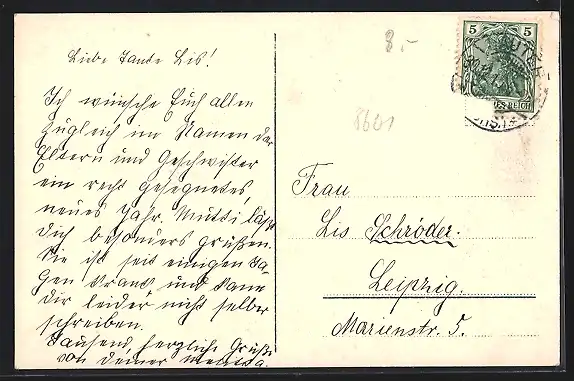 Liebe Tante Lis!
Ich wünsche Euch allen
zugleich im Namen der
Eltern und Geschwister
ein recht gesegnetes,
neues Jahr. Mutti läßt
Dich besonders grüßen.
Sie ist seit einigen Ta-
gen krank und kann
Dir leider nicht selber
schreiben.
Tausend, herzliche Grüße
von deiner
8.-
8601
5 5
Frau
Lis Schröder.
Leipzig.
Marienstr. 5.